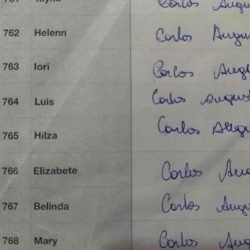 762 Helenn Carlos Augu
763 Iori Carlos Aug
764 Luis Carlos August
765 Hilza Carlos Augu
766 Elizabete Carlos Au
767 Belinda Carlos Aug
768 Mary Carlos Aug